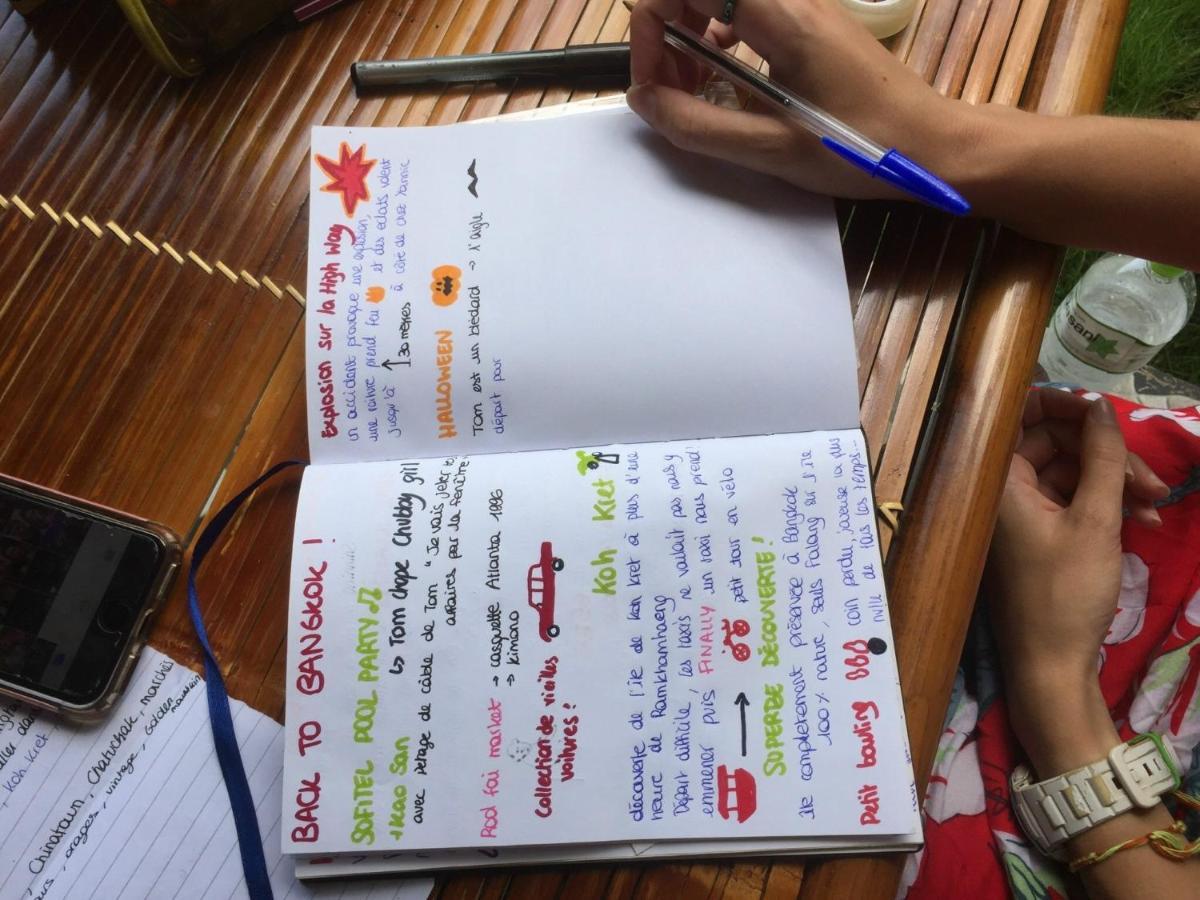 BACK TO BANGKOK !
SOFITEL POOL PARTY
+ Kao San ↳ Tom chope Chubby girl
avec pétage de câble de Tom "Je vais jeter tes
affaires par la fenêtre"
Rod fai market → casquette Atlanta 1996
→ kimono
Collection de vieilles
voitures !
Koh Kret
découverte de l'île de Koh Kret à plus d'une
heure de Ramkhamhaeng
Départ difficile, les taxis ne voulait pas nous y
emmener puis FINALLY un taxi nous prend!
→ petit tour en vélo
SUPERBE DÉCOUVERTE !
île complètement préservée à Bangkok
100% nature, seuls Falang sur l'île
Petit bowling coin perdu, joueuse la plus
nulle de tous les temps...
Explosion sur la High Way
un accident provoque une explosion,
une voiture prend feu et des éclats volent
jusqu'à ↑ 30 mètres à côté de chez Yannic
HALLOWEEN
Tom est un blédard → l'aigle
départ pour
Koh Kret
Chinatown, Chatuchak, marchés
orages, vintage, Golden
mountain